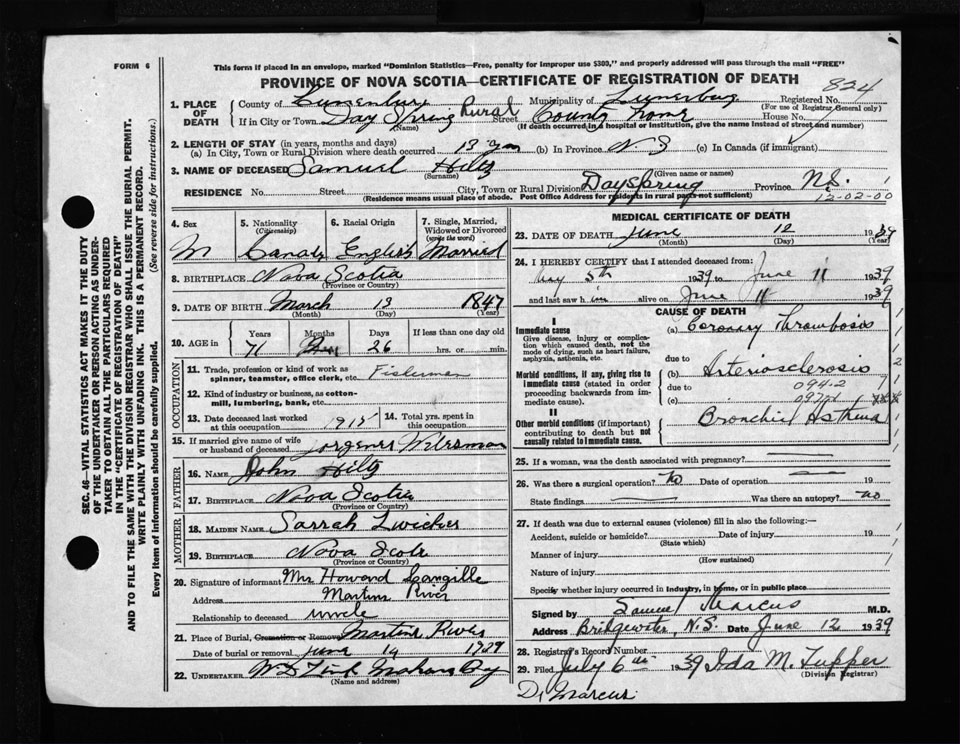 FORM 6
This form if placed in an envelope, marked "Dominion Statistics—Free, penalty for improper use $300," and properly addressed will pass through the mail "FREE"
PROVINCE OF NOVA SCOTIA—CERTIFICATE OF REGISTRATION OF DEATH
824
SEC. 46—VITAL STATISTICS ACT MAKES IT THE DUTY
OF THE UNDERTAKER OR PERSON ACTING AS UNDER-
TAKER TO OBTAIN ALL THE PARTICULARS REQUIRED
IN THE "CERTIFICATE OF REGISTRATION OF DEATH"
AND TO FILE THE SAME WITH THE DIVISION REGISTRAR WHO SHALL ISSUE THE BURIAL PERMIT.
WRITE PLAINLY WITH UNFADING INK. THIS IS A PERMANENT RECORD.
Every item of Information should be carefully supplied. (See reverse side for instructions.)
1. PLACE OF DEATH County of Lunenburg Municipality of Lunenburg Registered No.
(For use of Registrar General only)
If in City or Town Day Spring Rural Street County Home House No.
(Name) (If death occurred in a hospital or institution, give the name instead of street and number)
2. LENGTH OF STAY (in years, months and days)
(a) In City, Town or Rural Division where death occurred 13 yrs (b) In Province N S (c) In Canada (if immigrant)
3. NAME OF DECEASED Samuel Hiltz
(Surname) (Given name or names)
RESIDENCE No. Street City, Town or Rural Division Dayspring Province N.S.
(Residence means usual place of abode. Post Office Address for residents in rural parts not sufficient) 12-02-00
4. Sex 5. Nationality (Citizenship) 6. Racial Origin 7. Single, Married, Widowed or Divorced (write the word)
M Canada English Married
8. BIRTHPLACE Nova Scotia
(Province or Country)
9. DATE OF BIRTH March 13 1847
(Month) (Day) (Year)
10. AGE in Years Months Days If less than one day old
71 26 hrs. or min.
OCCUPATION
11. Trade, profession or kind of work as spinner, teamster, office clerk, etc. Fisherman
12. Kind of industry or business, as cotton-mill, lumbering, bank, etc.
13. Date deceased last worked at this occupation 1915 14. Total yrs. spent in this occupation
15. If married give name of wife or husband of deceased
FATHER
16. NAME John Hiltz
17. BIRTHPLACE Nova Scotia
(Province or Country)
MOTHER
18. MAIDEN NAME Sarrah Zwicker
19. BIRTHPLACE Nova Scoti
(Province or Country)
20. Signature of informant Mrs Howard Langille
Address Martins River
Relationship to deceased uncle
21. Place of Burial, Cremation or Removal Martins River
Date of burial or removal June 14 1939
22. UNDERTAKER Mahone Bay
(Name and address)
MEDICAL CERTIFICATE OF DEATH
23. DATE OF DEATH June 12 1939
(Month) (Day) (Year)
24. I HEREBY CERTIFY that I attended deceased from:
May 5th 1939 to June 11 1939
and last saw h im alive on June 11 1939
CAUSE OF DEATH
I
Immediate cause
Give disease, injury or complication which caused death, not the mode of dying, such as heart failure, asphyxia, asthenia, etc.
(a) Coronary Thrombosis
due to
Morbid conditions, if any, giving rise to immediate cause (stated in order proceeding backwards from immediate cause).
(b) Arteriosclerosis
due to 094-2
(c) 097
II
Other morbid conditions (if important) contributing to death but not causally related to immediate cause.
Bronchial Asthma
25. If a woman, was the death associated with pregnancy?
26. Was there a surgical operation? no Date of operation 19
State findings Was there an autopsy? no
27. If death was due to external causes (violence) fill in also the following:—
Accident, suicide or homicide? Date of injury 19
(State which)
Manner of injury
(How sustained)
Nature of injury
Specify whether injury occurred in industry, in home, or in public place
Signed by Samuel Marcus M.D.
Address Bridgewater, N.S. Date June 12 1939
28. Registrar's Record Number
29. Filed July 6th 1939 Ida M. Tupper
(Division Registrar)
Dr Marcus